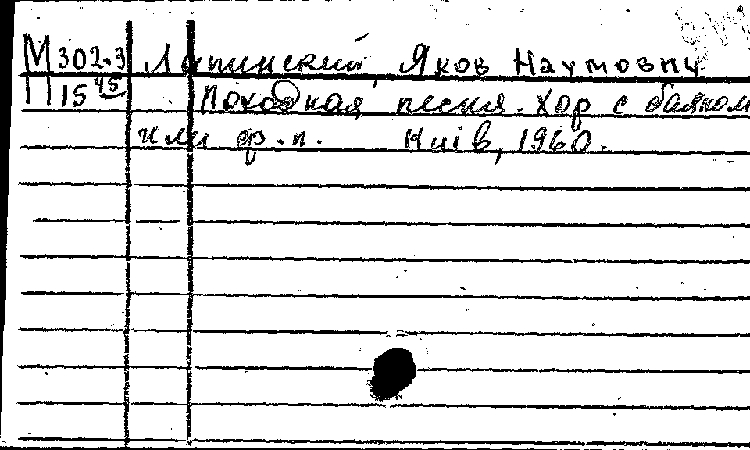 М302.3 Лапинский, Яков Наумович
П15 45 Походная песня. Хор с баяном
или ф.п. Київ, 1960.